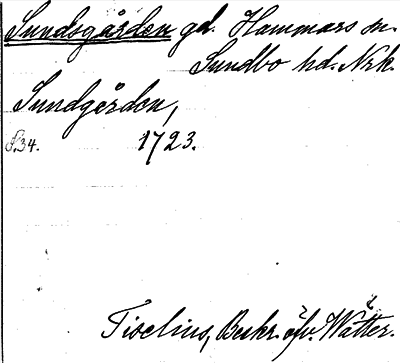 Sundsgården gd. Hammars sn.
Sundbo hd. Nrk.
Sundgården,
S. 34. 1723.
Tiselius, Beskr. öfv. Wätter.